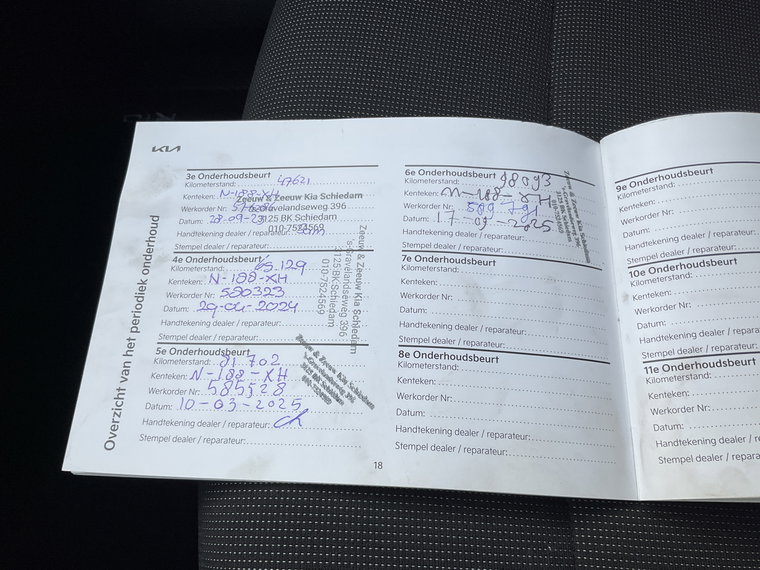 KIA
Overzicht van het periodiek onderhoud
3e Onderhoudsbeurt
Kilometerstand: 47621
Kenteken: N-188-XH
Werkorder Nr:
Datum: 28-09-23
Handtekening dealer / reparateur:
Stempel dealer / reparateur:
Zeeuw & Zeeuw Kia Schiedam
's-Gravelandseweg 396
3125 BK Schiedam
010-7524569
4e Onderhoudsbeurt
Kilometerstand: 65.129
Kenteken: N-188-XH
Werkorder Nr: 580323
Datum: 29-04-2024
Handtekening dealer / reparateur:
Stempel dealer / reparateur:
Zeeuw & Zeeuw Kia Schiedam
's-Gravelandseweg 396
3125 BK Schiedam
010-7524569
5e Onderhoudsbeurt
Kilometerstand: 81.702
Kenteken: N-188-XH
Werkorder Nr: 585528
Datum: 10-03-2025
Handtekening dealer / reparateur:
Stempel dealer / reparateur:
Zeeuw & Zeeuw Kia Schiedam
's-Gravelandseweg 396
3125 BK Schiedam
18
6e Onderhoudsbeurt
Kilometerstand: 98093
Kenteken: N-188-XH
Werkorder Nr: 589791
Datum: 17-09-2025
Handtekening dealer / reparateur:
Stempel dealer / reparateur:
7e Onderhoudsbeurt
Kilometerstand:
Kenteken:
Werkorder Nr:
Datum:
Handtekening dealer / reparateur:
Stempel dealer / reparateur:
8e Onderhoudsbeurt
Kilometerstand:
Kenteken:
Werkorder Nr:
Datum:
Handtekening dealer / reparateur:
Stempel dealer / reparateur:
9e Onderhoudsbeurt
Kilometerstand:
Kenteken:
Werkorder Nr:
Datum:
Handtekening dealer /
Stempel dealer / repara
10e Onderhoudsbeurt
Kilometerstand:
Kenteken:
Werkorder Nr:
Datum:
Handtekening dealer /
Stempel dealer / repar
11e Onderhoudsbeurt
Kilometerstand:
Kenteken:
Werkorder Nr:
Datum:
Handtekening dealer /
Stempel dealer / repara